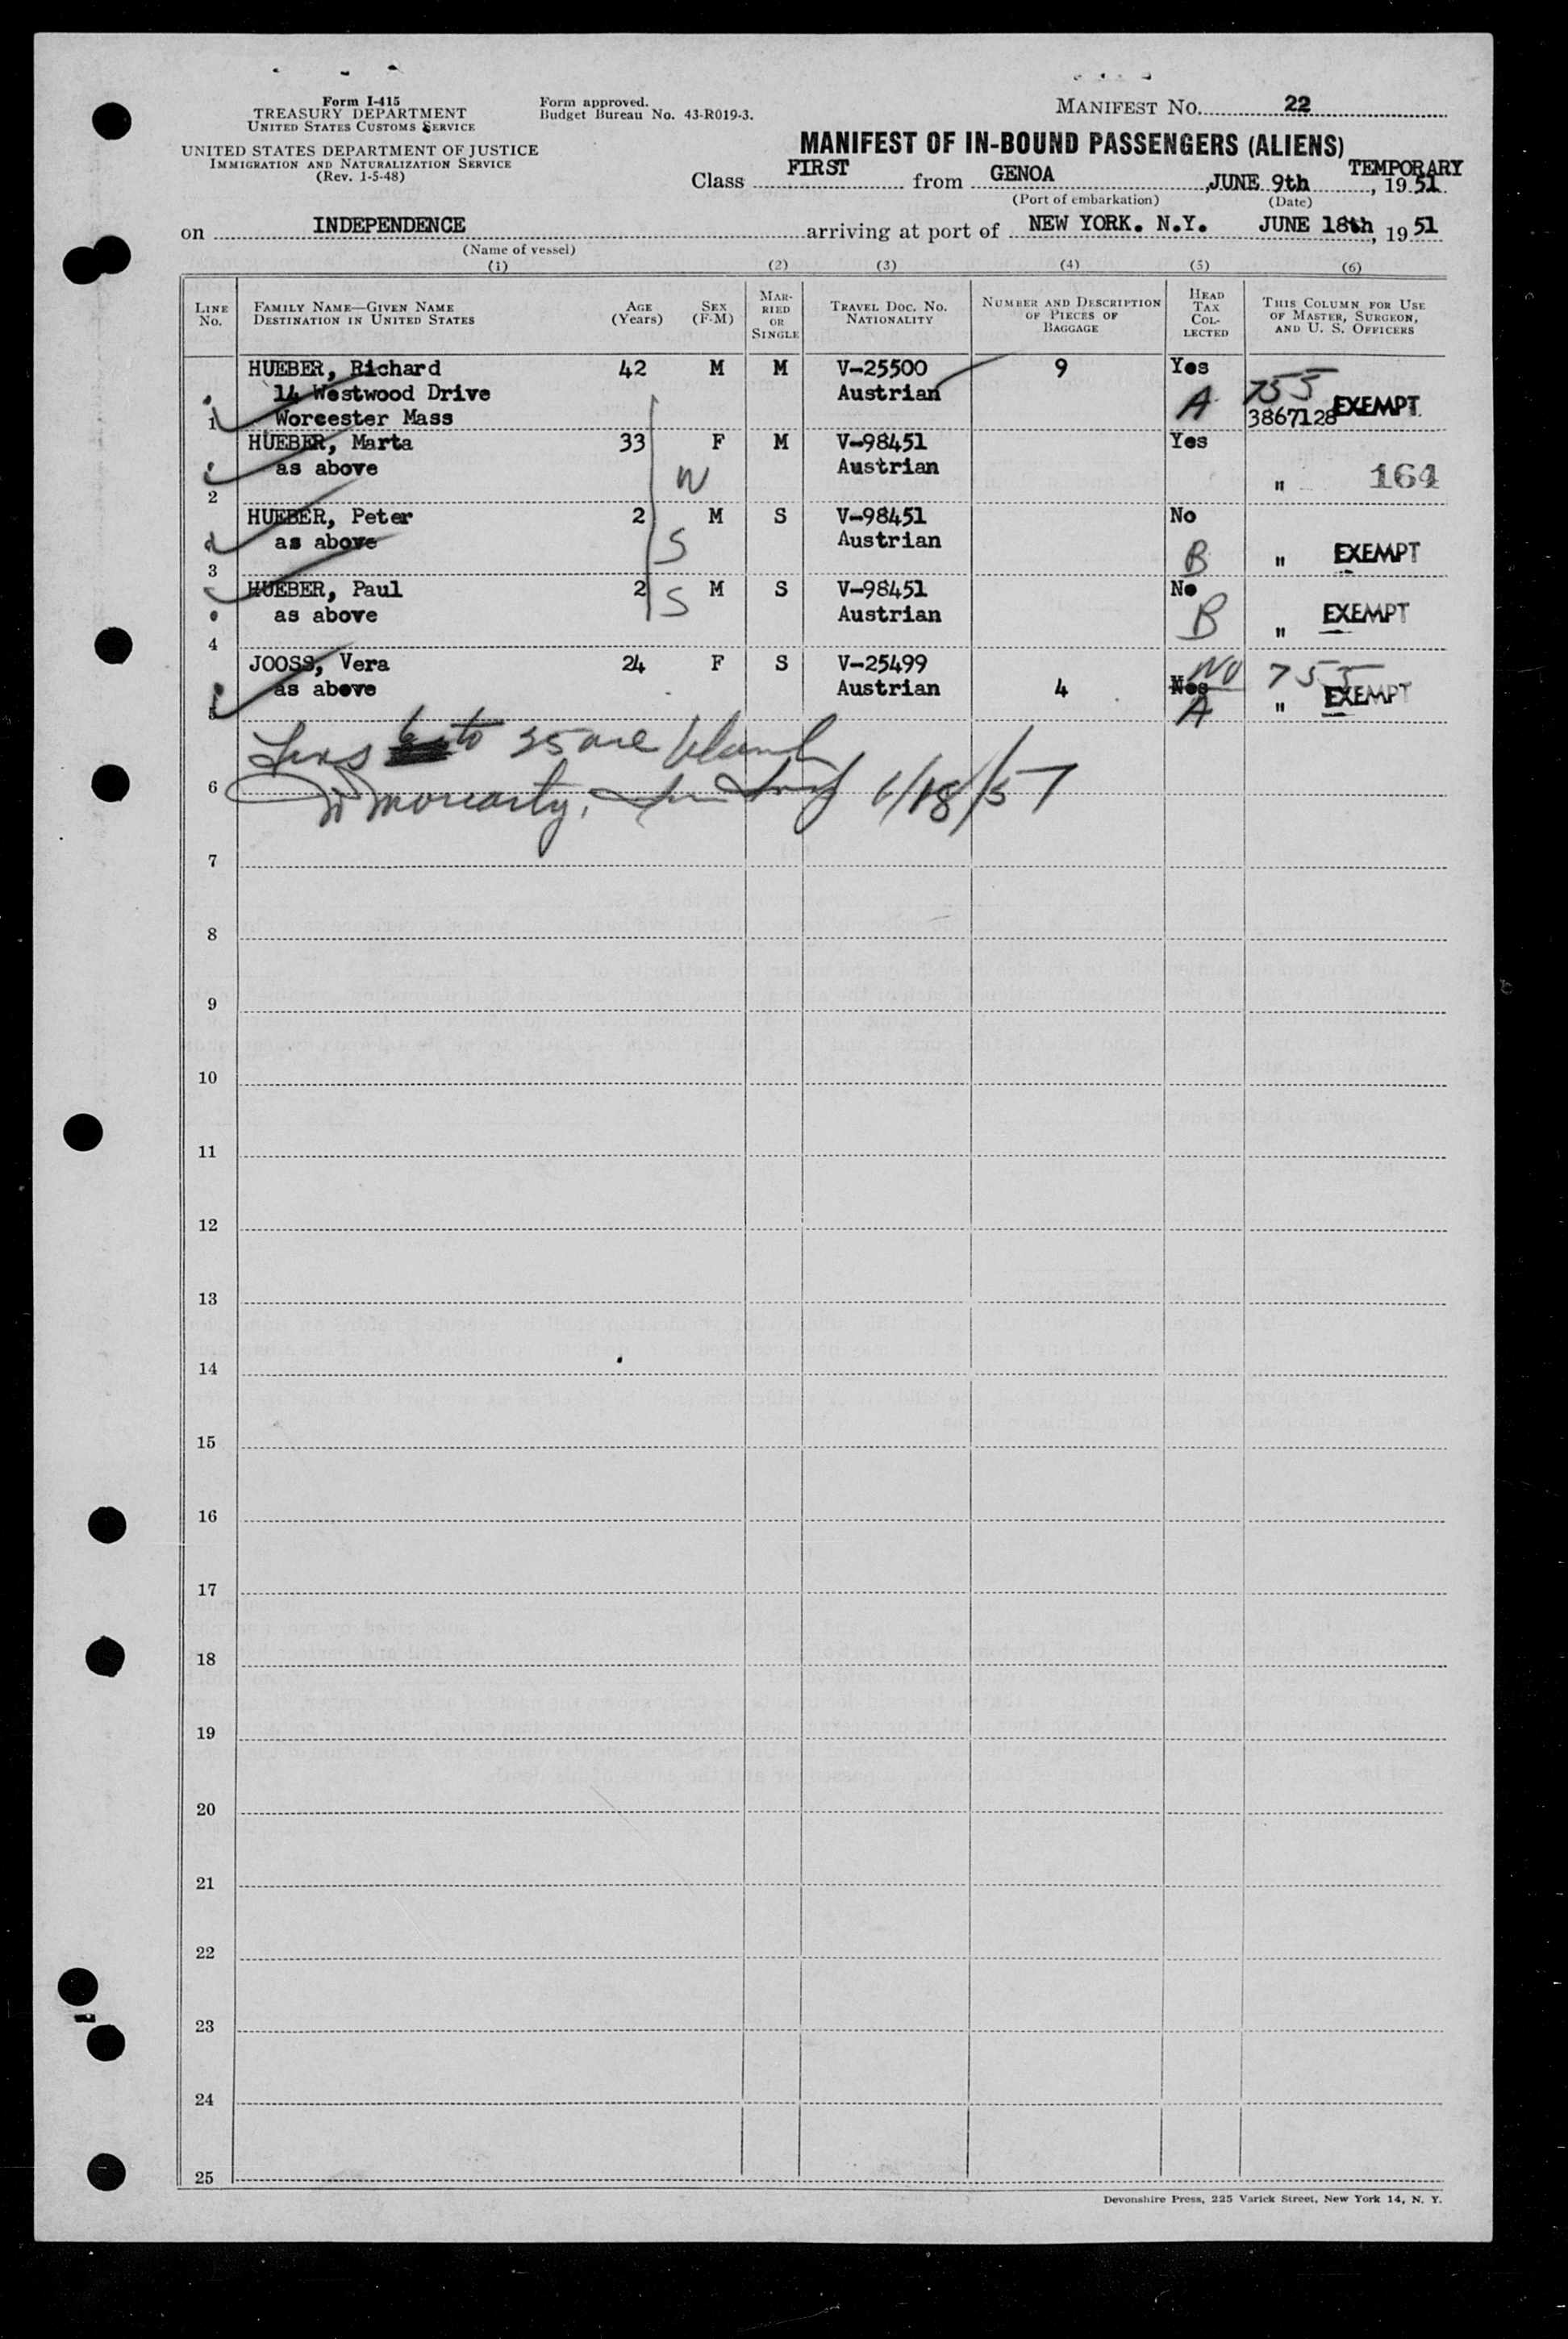 Form I-415
TREASURY DEPARTMENT
UNITED STATES CUSTOMS SERVICE
UNITED STATES DEPARTMENT OF JUSTICE
IMMIGRATION AND NATURALIZATION SERVICE
(Rev. 1-5-48)
Form approved.
Budget Bureau No. 43-R019-3.
MANIFEST No. 22
MANIFEST OF IN-BOUND PASSENGERS (ALIENS)
TEMPORARY
Class FIRST from GENOA, JUNE 9th, 1951
(Port of embarkation) (Date)
on INDEPENDENCE arriving at port of NEW YORK. N.Y. JUNE 18th, 1951
(Name of vessel)
(1) (2) (3) (4) (5) (6)
LINE No.
FAMILY NAME—GIVEN NAME
DESTINATION IN UNITED STATES
AGE (Years)
SEX (F-M)
MARRIED OR SINGLE
TRAVEL DOC. NO. NATIONALITY
NUMBER AND DESCRIPTION OF PIECES OF BAGGAGE
HEAD TAX COLLECTED
THIS COLUMN FOR USE OF MASTER, SURGEON, AND U. S. OFFICERS
HUEBER, Richard 42 M M V-25500 9 Yes
14 Westwood Drive Austrian A 755
1 Worcester Mass 3867128 EXEMPT
HUEBER, Marta 33 F M V-98451 Yes
as above W Austrian " 164
2
HUEBER, Peter 2 M S V-98451 No
as above S Austrian B " EXEMPT
3
HUEBER, Paul 2 S M S V-98451 No
as above Austrian B " EXEMPT
4
JOOSS, Vera 24 F S V-25499 NO 755
as above Austrian 4 A " EXEMPT
5
Lines 6 to 25 are blank
6 Moriarty, 6/18/51
7
8
9
10
11
12
13
14
15
16
17
18
19
20
21
22
23
24
25
Devonshire Press, 225 Varick Street, New York 14, N. Y.